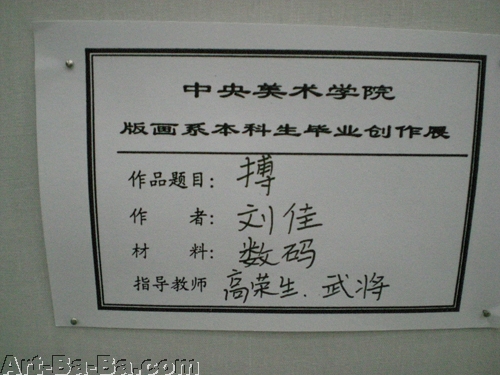 中央美术学院
版画系本科生毕业创作展
作品题目：搏
作　　者：刘佳
材　　料：数码
指导教师 高荣生、武将
Art-Ba-Ba.com